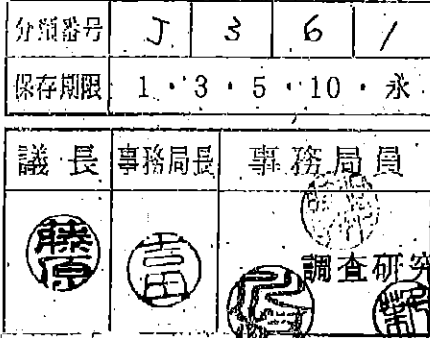 分類番号 J 3 6 1
保存期限 1・3・5・10・永
議長 事務局長 事務局員
藤原 吉田
調査研究